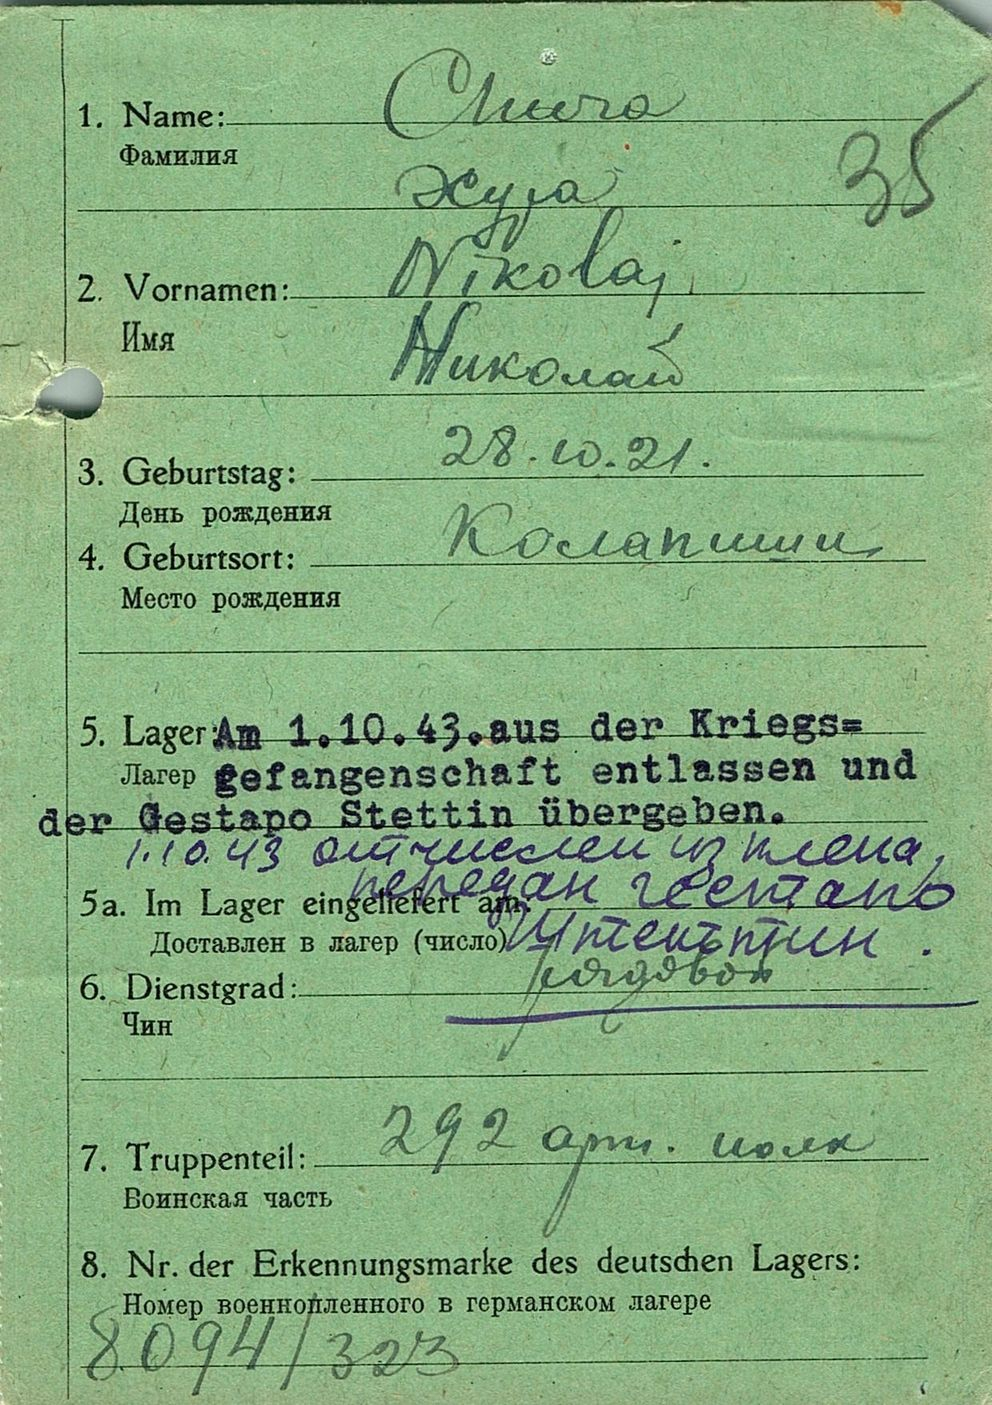 35
1. Name:
Фамилия
Жуга
2. Vornamen: Nikolaj
Имя Николай
3. Geburtstag: 28.10.21.
День рождения
4. Geburtsort:
Место рождения
5. Lager: Am 1.10.43.aus der Kriegs=
Лагер gefangenschaft entlassen und
der Gestapo Stettin übergeben.
1.10.43 отчислен из плена,
передан гестапо
5a. Im Lager eingeliefert am:
Доставлен в лагер (число) Штеттин.
6. Dienstgrad: рядовой
Чин
7. Truppenteil: 292 арт. полк
Воинская часть
8. Nr. der Erkennungsmarke des deutschen Lagers:
Номер военнопленного в германском лагере
8094/323